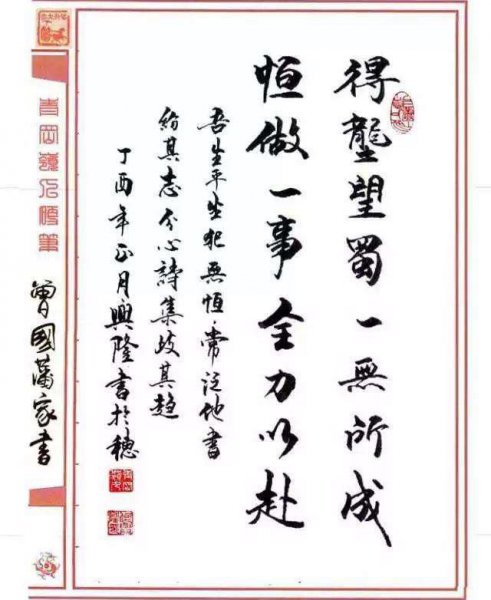 得壟望蜀一無所成
恒做一事全力以赴
吾生平坐犯無恒·常泛他書
紛其志分心詩集歧其趨
丁酉年正月興隆書於穗
青岡嶺人筆
曾國藩家書